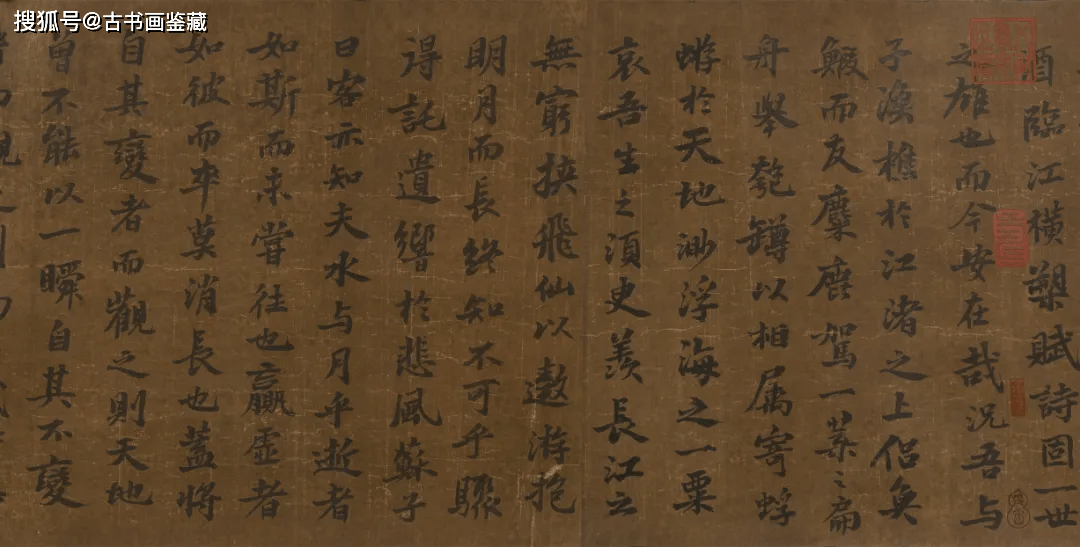 搜狐号@古书画鉴藏
酒臨江横槊賦詩固一世
之雄也而今安在哉況吾与
子漁樵於江渚之上侣奂
鰕而友麋鹿駕一葉之扁
舟舉匏罇以相属寄蜉
蝣於天地渺浮海之一粟
哀吾生之須叟羨長江之
無窮挾飛仙以遨游抱
明月而長終知不可乎驟
得託遺響於悲風蘇子
曰客亦知夫水与月乎逝者
如斯而未嘗往也贏虚者
如彼而卒莫消長也盖將
自其變者而觀之則天地
曾不能以一瞬自其不變